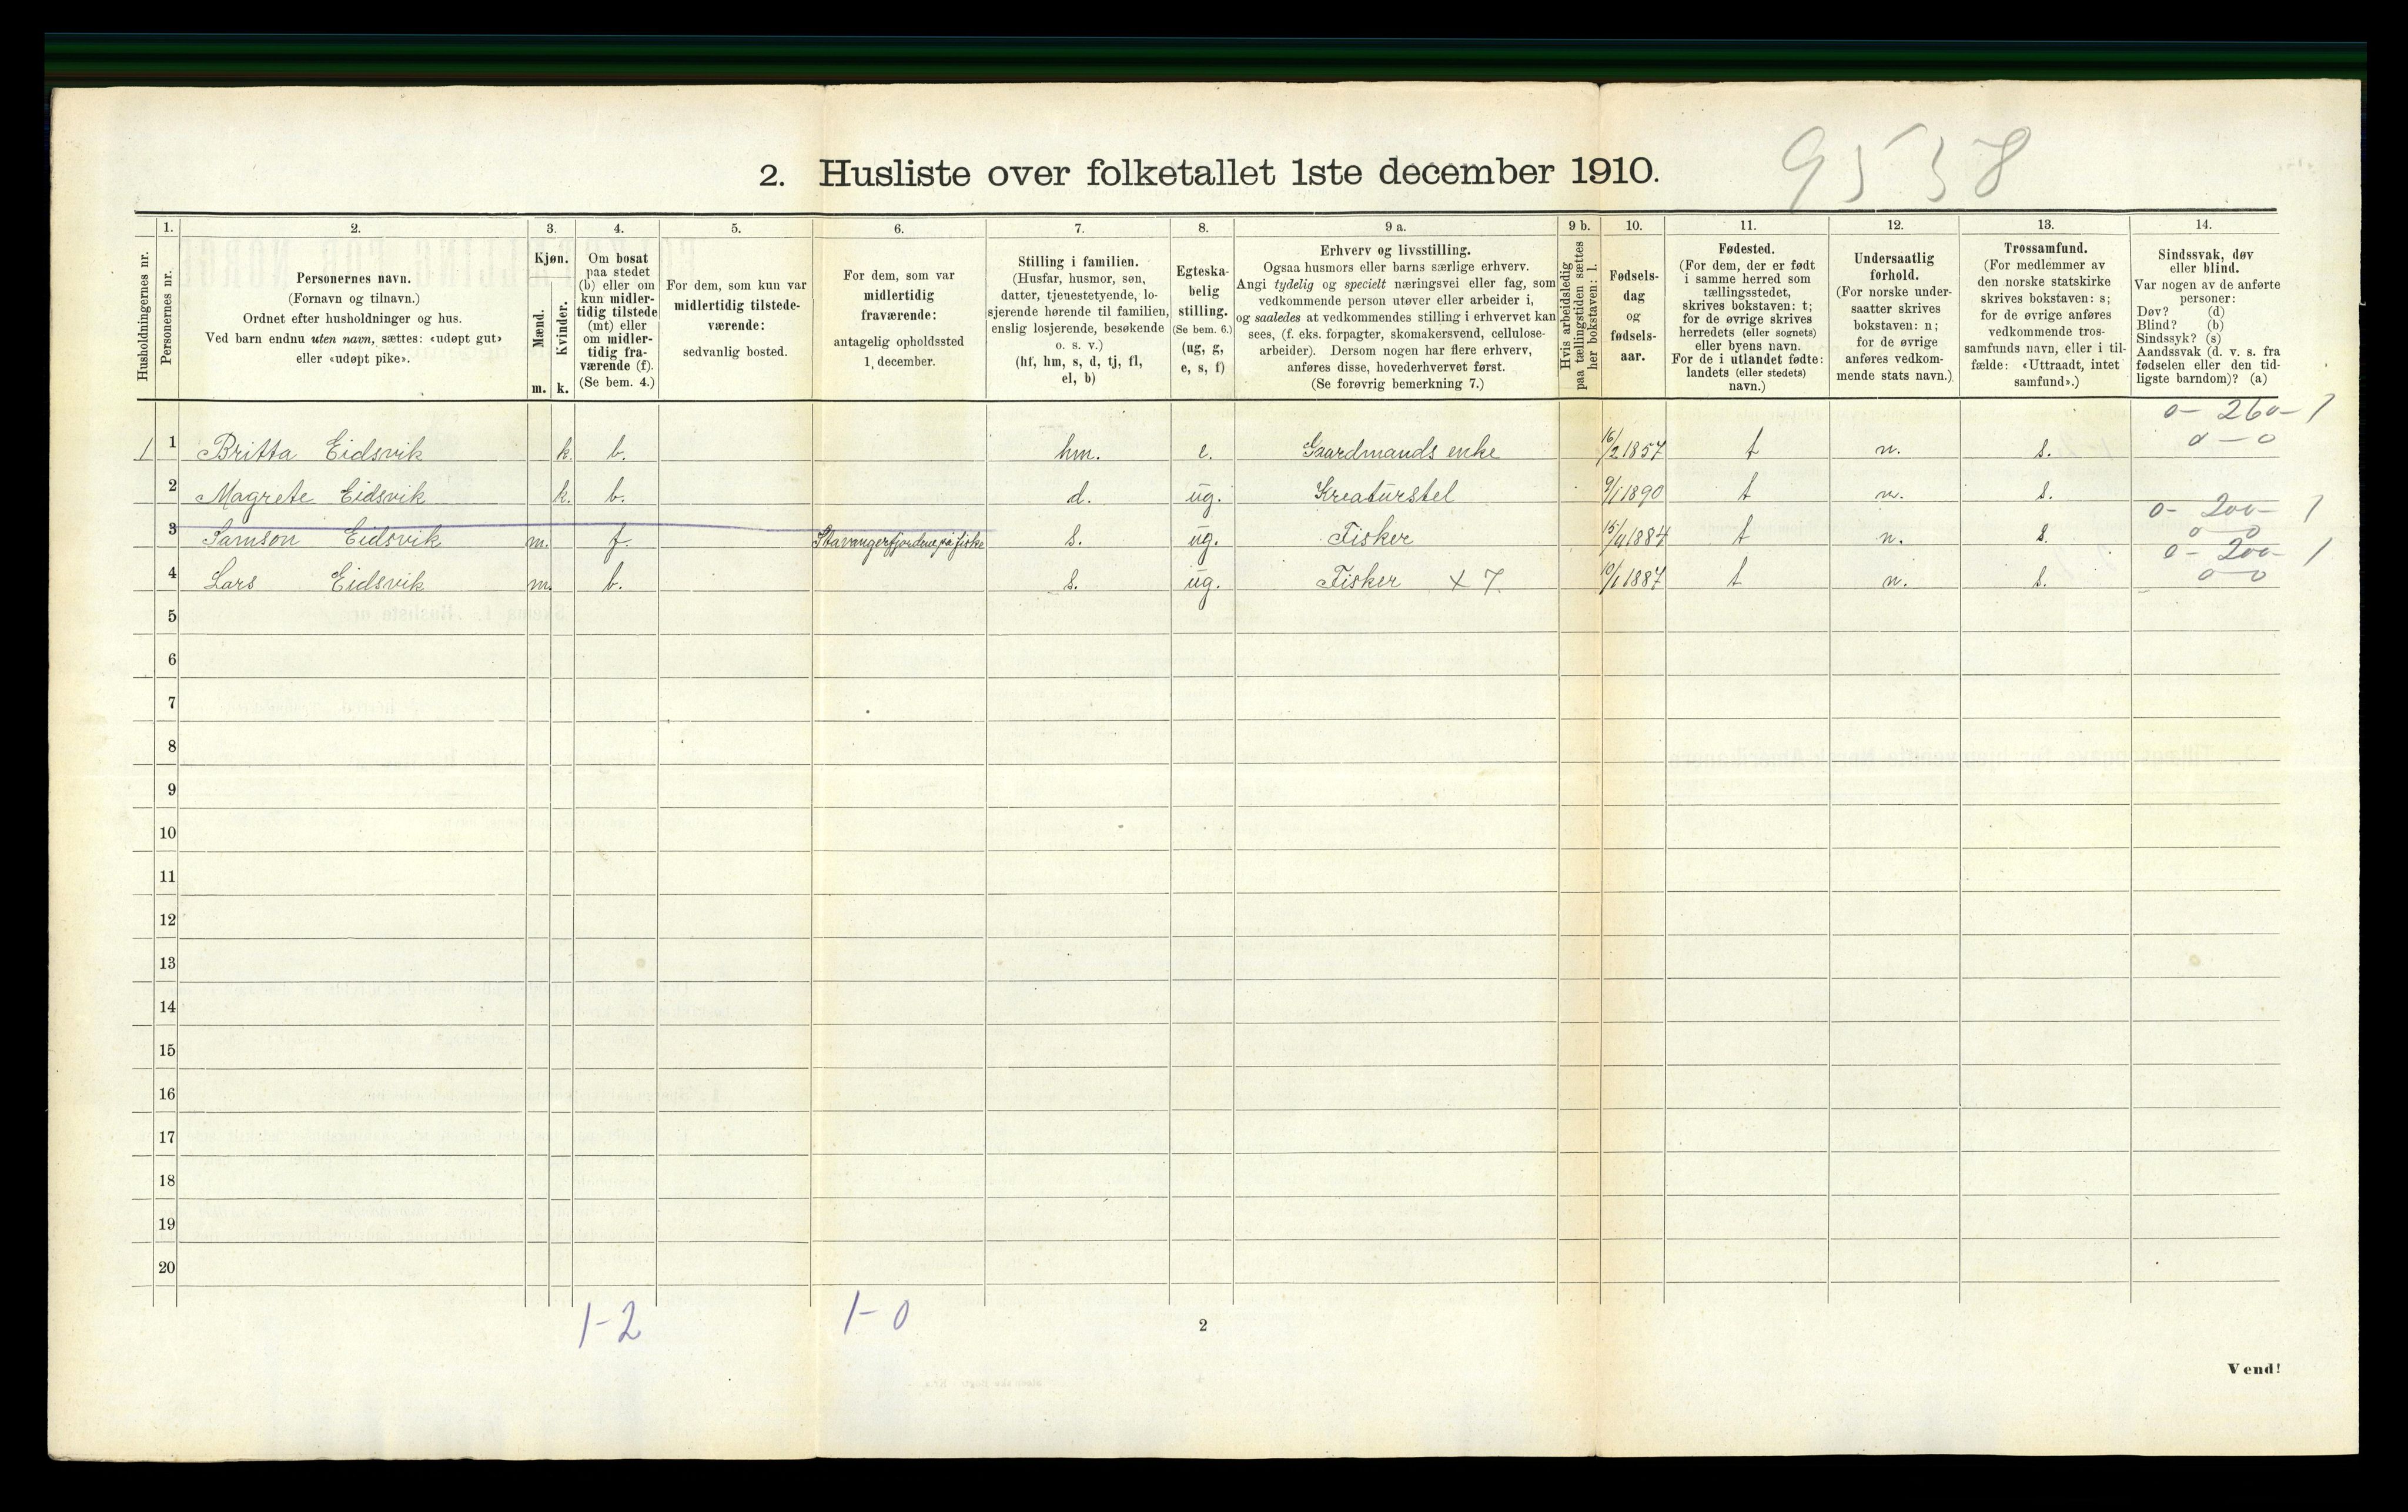 9538
2. Husliste over folketallet 1ste december 1910.
Husholdningernes nr.
1.
Personernes nr.
2.
Personernes navn.
(Fornavn og tilnavn.)
Ordnet efter husholdninger og hus.
Ved barn endnu uten navn, sættes: «udøpt gut»
eller «udøpt pike».
3.
Kjøn.
Mænd.
m.
Kvinder.
k.
4.
Om bosat
paa stedet
(b) eller om
kun midler-
tidig tilstede
(mt) eller
om midler-
tidig fra-
værende (f).
(Se bem. 4.)
5.
For dem, som kun var
midlertidig tilstede-
værende:
sedvanlig bosted.
6.
For dem, som var
midlertidig
fraværende:
antagelig opholdssted
1. december.
7.
Stilling i familien.
(Husfar, husmor, søn,
datter, tjenestetyende, lo-
sjerende hørende til familien,
enslig losjerende, besøkende
o. s. v.)
(hf, hm, s, d, tj, fl,
el, b)
8.
Egteska-
belig
stilling.
(Se bem. 6.)
(ug, g,
e, s, f)
9 a.
Erhverv og livsstilling.
Ogsaa husmors eller barns særlige erhverv.
Angi tydelig og specielt næringsvei eller fag, som
vedkommende person utøver eller arbeider i,
og saaledes at vedkommendes stilling i erhvervet kan
sees, (f. eks. forpagter, skomakersvend, cellulose-
arbeider). Dersom nogen har flere erhverv,
anføres disse, hovederhvervet først.
(Se forøvrig bemerkning 7.)
9 b.
Hvis arbeidsledig
paa tællingstiden sættes
her bokstaven: l.
10.
Fødsels-
dag
og
fødsels-
aar.
11.
Fødested.
(For dem, der er født
i samme herred som
tællingsstedet,
skrives bokstaven: t;
for de øvrige skrives
herredets (eller sognets)
eller byens navn.
For de i utlandet fødte:
landets (eller stedets)
navn.)
12.
Undersaatlig
forhold.
(For norske under-
saatter skrives
bokstaven: n;
for de øvrige
anføres vedkom-
mende stats navn.)
13.
Trossamfund.
(For medlemmer av
den norske statskirke
skrives bokstaven: s;
for de øvrige anføres
vedkommende tros-
samfunds navn, eller i til-
fælde: «Uttraadt, intet
samfund».)
14.
Sindssvak, døv
eller blind.
Var nogen av de anførte
personer:
Døv? (d)
Blind? (b)
Sindssyk? (s)
Aandssvak (d. v. s. fra
fødselen eller den tid-
ligste barndom)? (a)
0- 260- 1
0-0
1 1 Britta Eidsvik k. b. hm. e. Gaardmands enke 16/2 1857 t n. s.
2 Magrete Eidsvik k. b. d. ug. Kreaturstel 9/1 1890 t n. s.
0- 200- 1
0-0
3 Samson Eidsvik m. f. Stavangerfjordene på fiske s. ug. Fisker 15/4 1884 t n. s.
0- 200- 1
0-0
4 Lars Eidsvik m. b. s. ug. Fisker x 7. 10/1 1887 t n. s.
5
6
7
8
9
10
11
12
13
14
15
16
17
18
19
20
1-2
1-0
2
Vend!